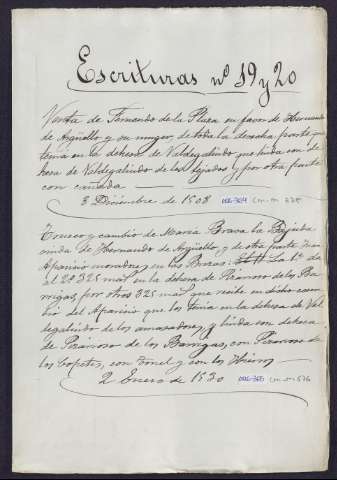 Escrituras nº 19 y 20
Venta de Fernando de la Plaza en favor de Hernando
de Argüello y su muger de toda la derecha parte que
tenia en la dehesa de Valdegalindo que linda con de
hesa de Valdegalindo de los tejados y por otra parte
con cañada
3 Diciembre de 1508 006-364
Trueco y cambio de María Brava la
viuda de Hernando de Argüello, y de otra parte Juan
Aparicio morador en los Brozas. La 1ª da
al 2º 325 mas en la dehesa de Pizarroso de los Ba-
rrigas, por otros 325 mas que recibe en dicho cam-
bio del Aparicio que los tenia en la dehesa de Val
degalindo de los amasadores, y linda con dehesa
de Pizarroso de los Barrigas, con Pizarroso de
los Topetes, con y con los
2 Enero de 1530 006-365